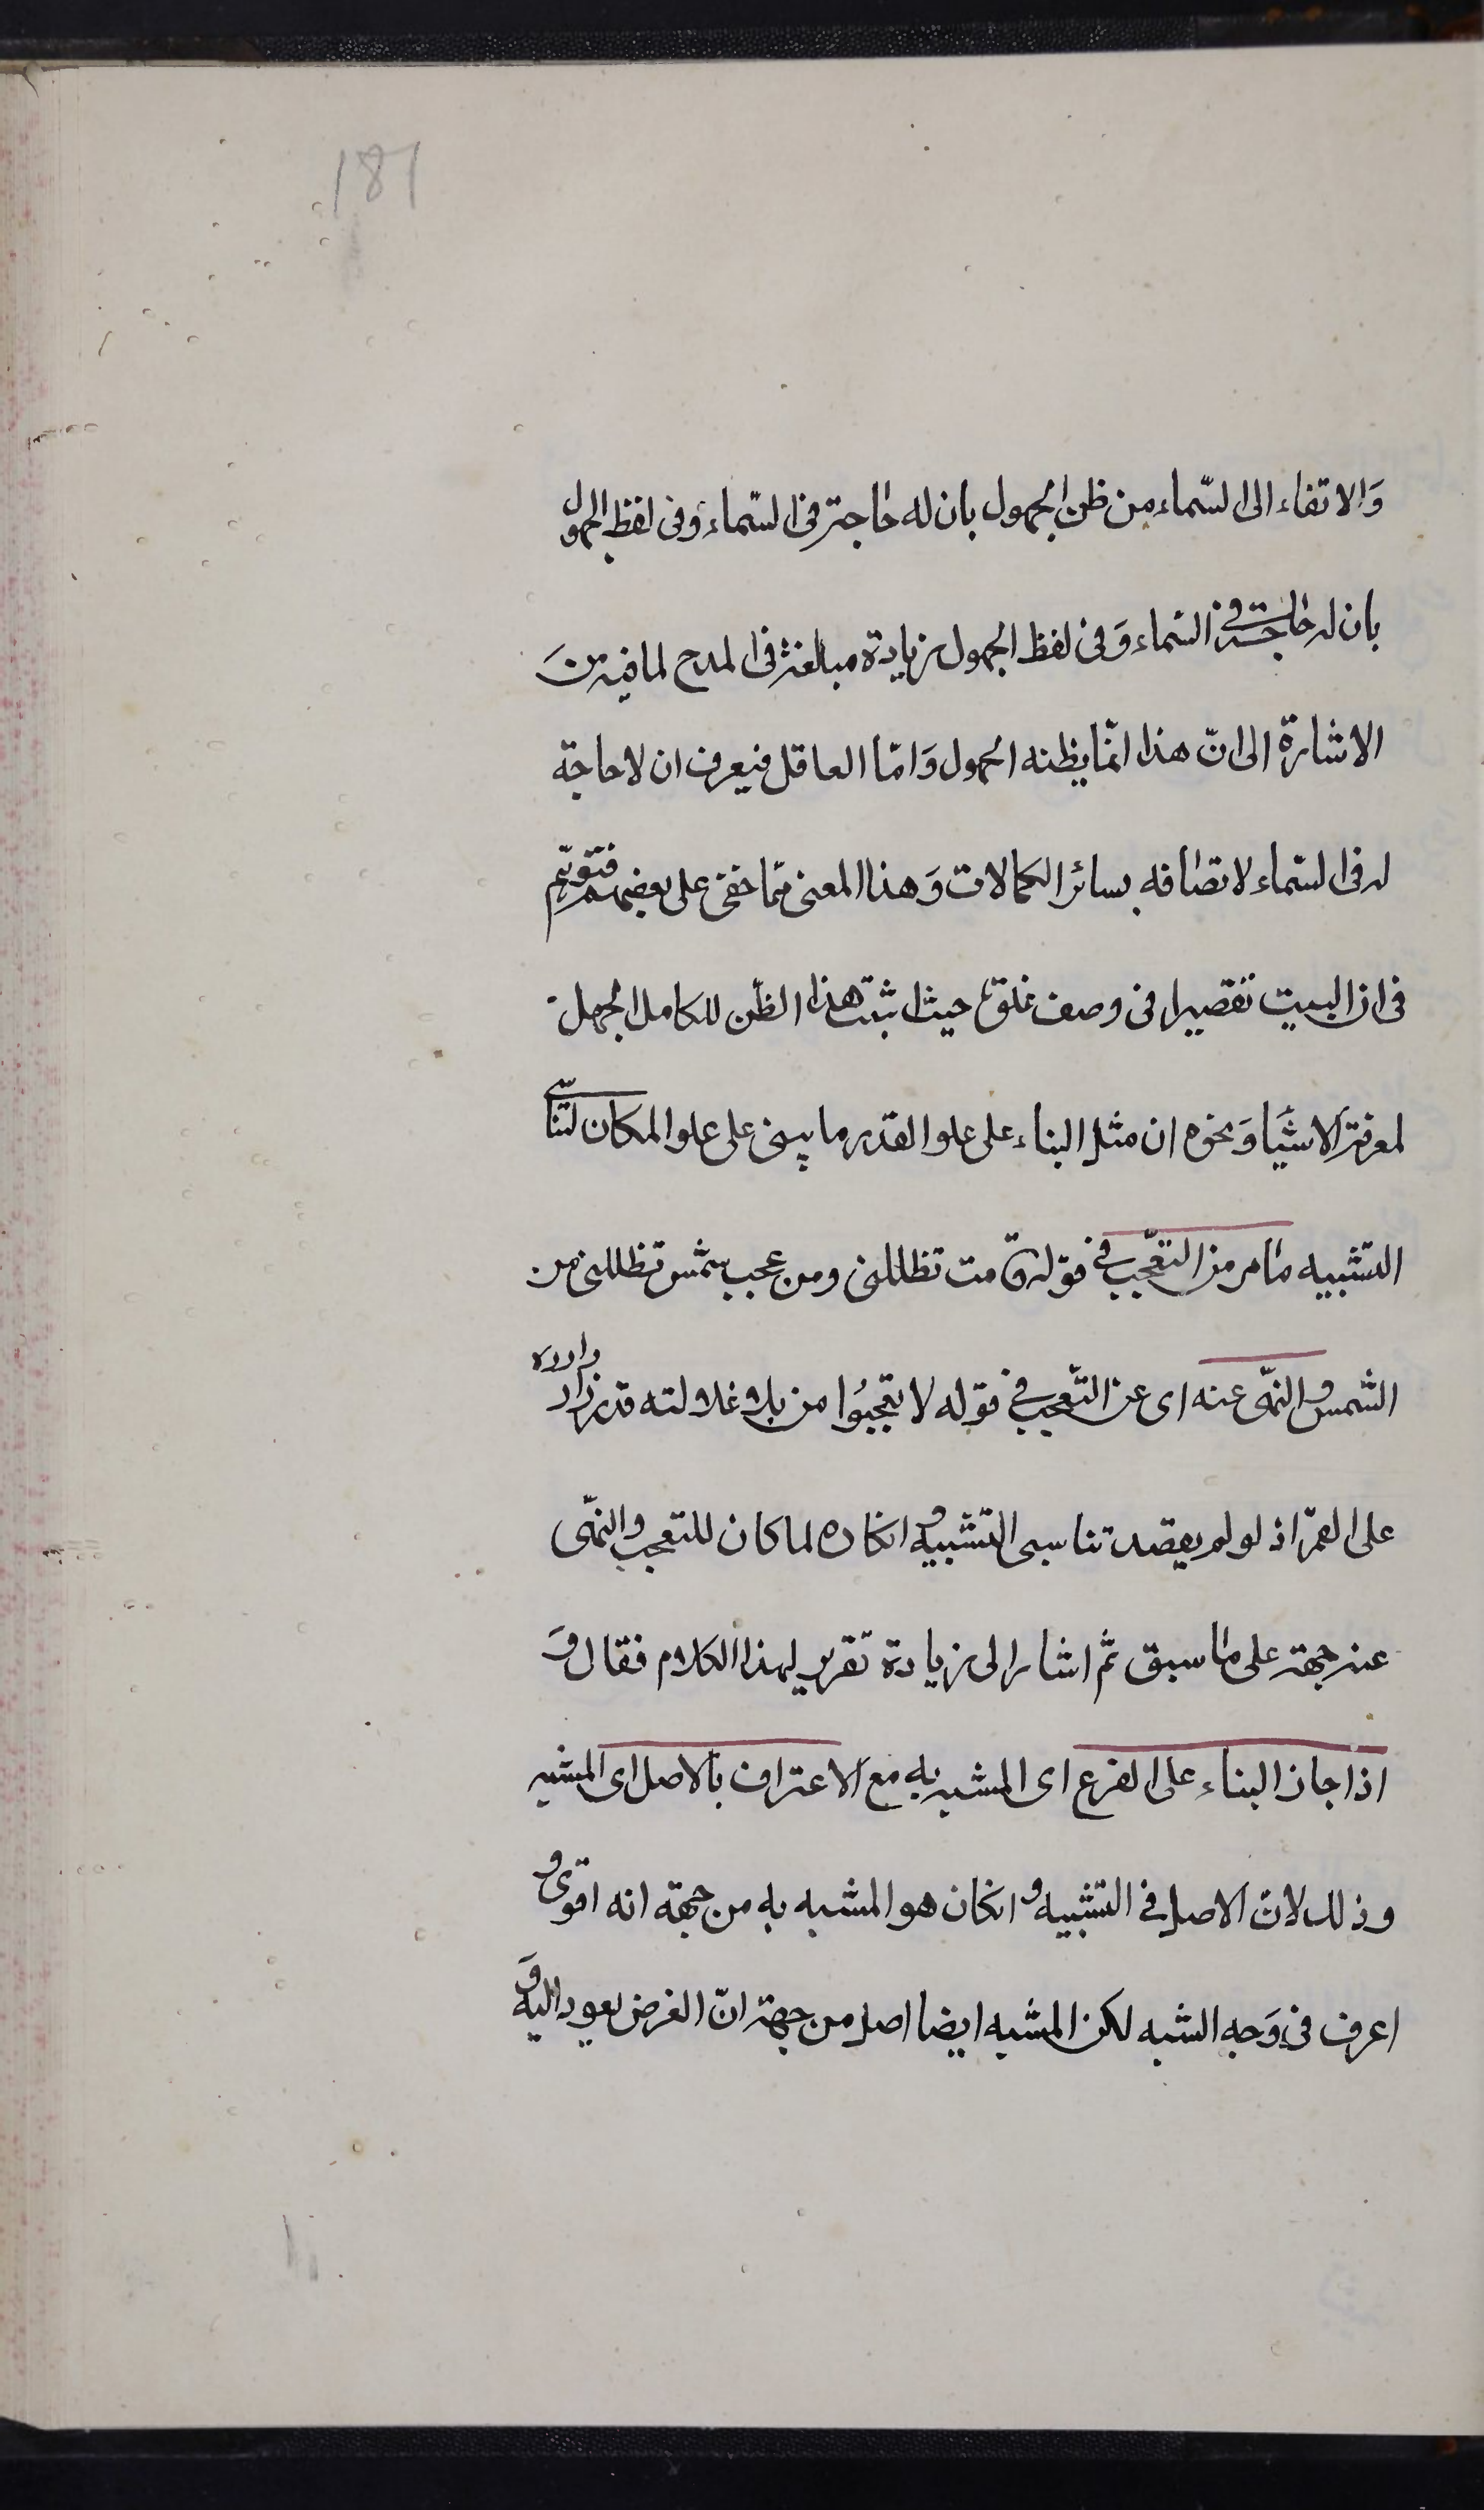 181
وَالاتفاء الى السّماء من ظن الجهول بان له حاجة فى السّماء وفى لفظ الجهول
بان له حاجة فى السّماء وَفى لفظ الجهول زيادة مبالغة فى المدح لما فيه من
الاشارة الى انّ هذا انّما يظنه الجهول وَامّا العاقل فيعرف ان لا حاجة
له فى السّماء لاتصافه بسائر الكمالات وَهذا المعنى ممّا خفى على بعضهم فتوهّم
فى ان البيت تقصيرا فى وصف علوّه حيث اثبت هذا الظّن للكامل الجهل
لمعرفة الاشيَا وَنحوه ان مثل البناء على علو القدر ما يبنى على علو المكان لتناسى
التّشبيه مامر من التعّجب فى قوله قامت تظللنى ومن عجب شمس تظللنى من
الشّمس والنّهى عنه اى عن التّعجب فى قوله لا تعجبُوا من بلا غلالته قد زرّ ازراره
على القمّر اذ لو لم يقصد تناسى التّشبيه وانكاره لما كان للتعجب والنّهى
عنه جهة على ما سبق ثمّ اشار الى زيادة تقرير لهذا الكلام فقال وَ
اذا جاز البناء على الفرع اى المشبه به مع الاعتراف بالاصل اى المشبه
وذلك لانّ الاصل فى التّشبيه وانكان هو المشبه به من جهة انه اقوى و
اعرف فى وَجه الشبه لكن المشبه ايضا اصل من جهة انّ الغرض يعود اليه وَ